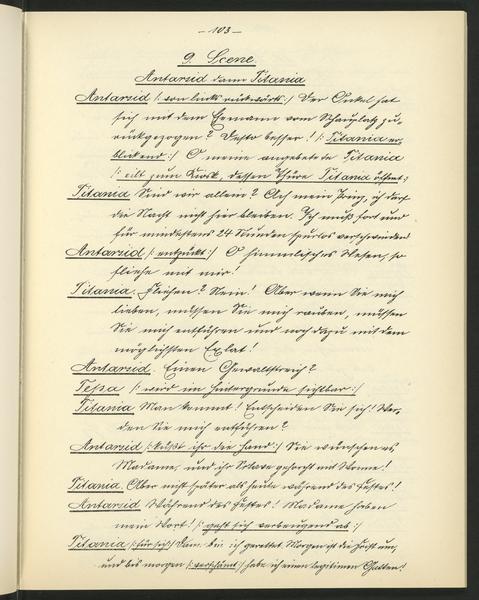 – 103 –
9. Scene.
Antarsid dann Titania
Antarsid /: von links rückwärts :/ Der Onkel hat
sich mit dem Ehemann vom Schauplatz zu-
rückgezogen? Desto besser! /: Titania er-
blickend :/ O meine angebetete Titania
/: eilt zum Kiosk, dessen Thüre Titania öffnet :/
Titania Sind wir allein? Ach mein Prinz, ich darf
die Nacht nicht hier bleiben. Ich muß fort und
für mindestens 24 Stunden spurlos verschwinden!
Antarsid /: entzückt :/ O himmlisches Wesen, so
fliehe mit mir!
Titania. Fliehen? Nein! Aber wenn Sie mich
lieben, müssen Sie mich rauben, müssen
Sie mich entführen und noch dazu mit dem
möglichsten Eclat!
Antarsid. Einen Gewaltstreich?
Tessa /: wird im Hintergrunde sichtbar :/
Titania Man kommt! Entscheiden Sie sich! Wer-
den Sie mich entführen?
Antarsid /: küßt ihr die Hand :/ Sie wünschen es,
Madame, und ihr Sclave gehorcht mit Wonne!
Titania. Aber nicht später als heute während des Festes!
Antarsid Während des Festes! Madame haben
mein Wort! /: geht sich verbeugend ab :/
Titania /: für sich :/ Dann bin ich gerettet. Morgen ist die Frist um,
und bis morgen /: verschämt :/ habe ich einen legitimen Gatten!